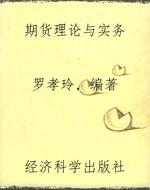 期货理论与实务
罗孝玲．编著
经济科学出版社